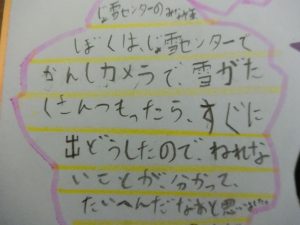 じょ雪センターのみなさま
ぼくは、じょ雪センターで
かんしカメラで、雪がた
くさんつもったら、すぐに
出どうしたので、ねれな
いことが、分かって、
たいへんだなあと思いました。